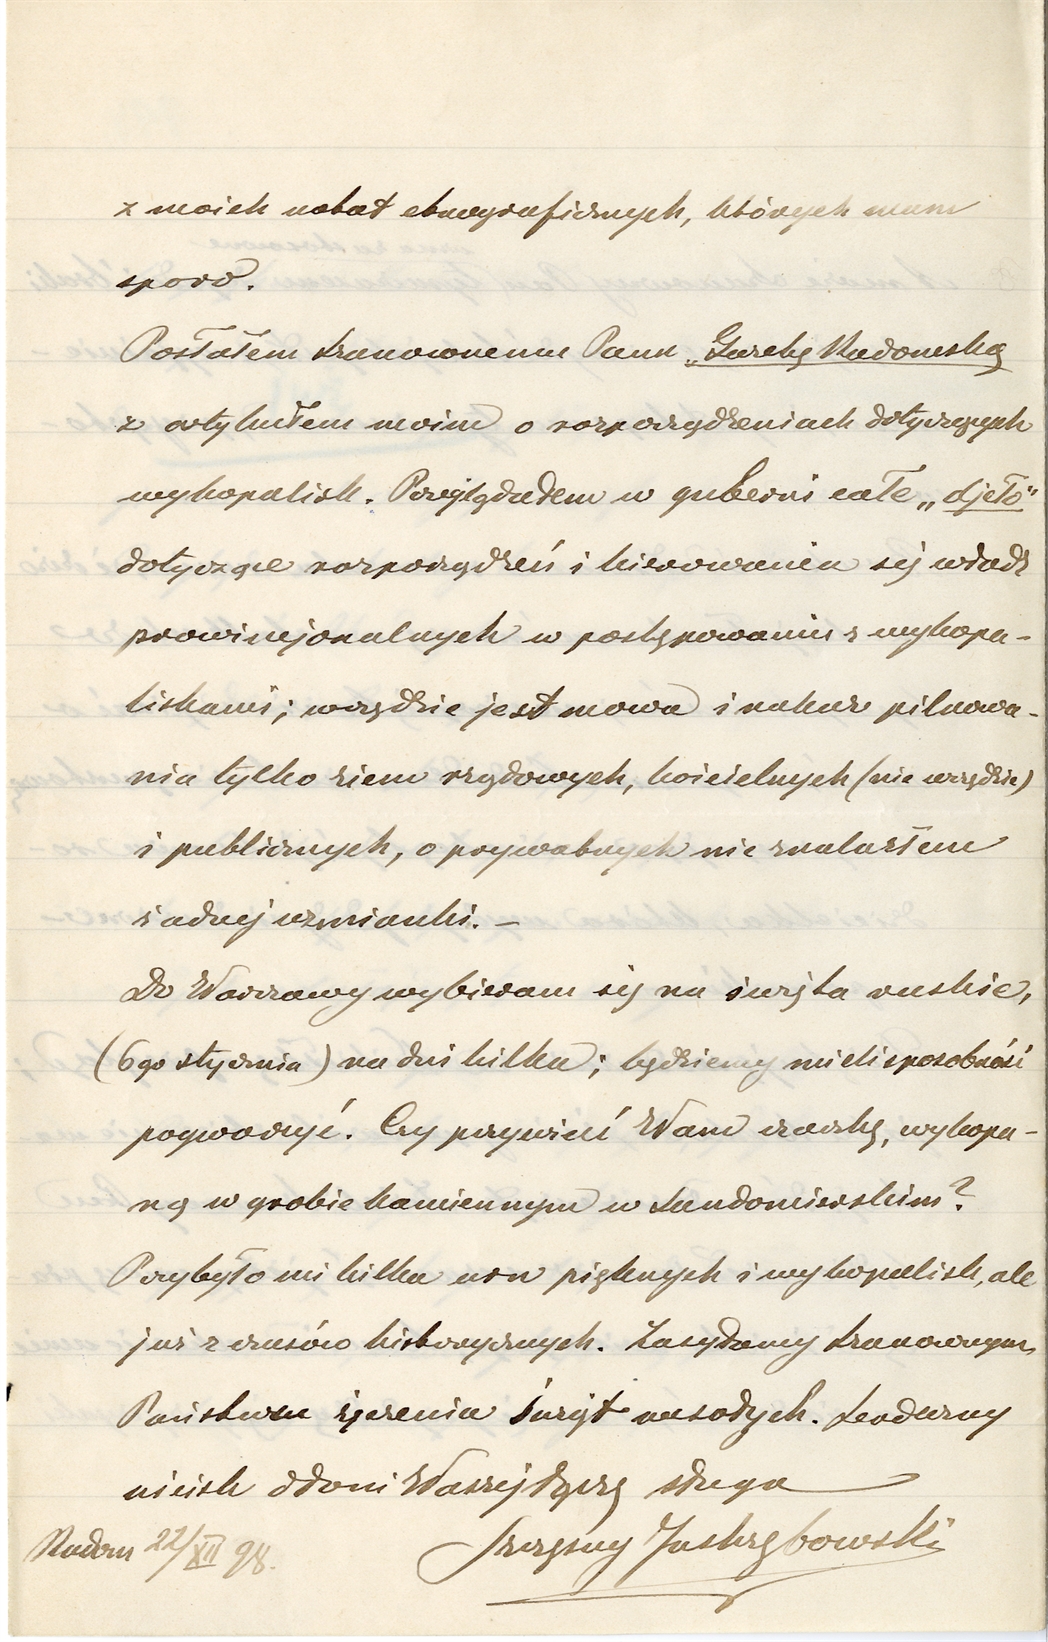 z moich notat etnograficznych, których mam
sporo.
Posłałem Szanownemu Panu „Gazetę Radomską
z artykułem moim o rozporządzeniach dotyczących
wykopalisk. Przeglądałem w gubernii całe „djeło”
dotyczące rozporządzeń i kierowania się władz
prowincjonalnych w postępowaniu z wykopa-
liskami; wszędzie jest mowa i nakaz pilnowa-
nia tylko ziem rządowych, kościelnych (nie wszędzie)
i publicznych, o prywatnych nie znalazłem
żadnej wzmianki. –
Do Warszawy wybieram się na święta ruskie,
(6go stycznia) na dni kilka; będziemy mieli sposobność
pogwarzyć. Czy przywieść Wam czaszkę, wykopa-
ną w grobie kamiennym w Sandomierskim?
Przybyło mi kilka urn pięknych i wykopalisk, ale
już z czasów historycznych. Zasyłamy Szanownym
Państwu życzenia Świąt wesołych. Serdeczny
uścisk dłoni Waszej łączę sługa
Szczęsny Jastrzębowski
Radom 22/XII 98.